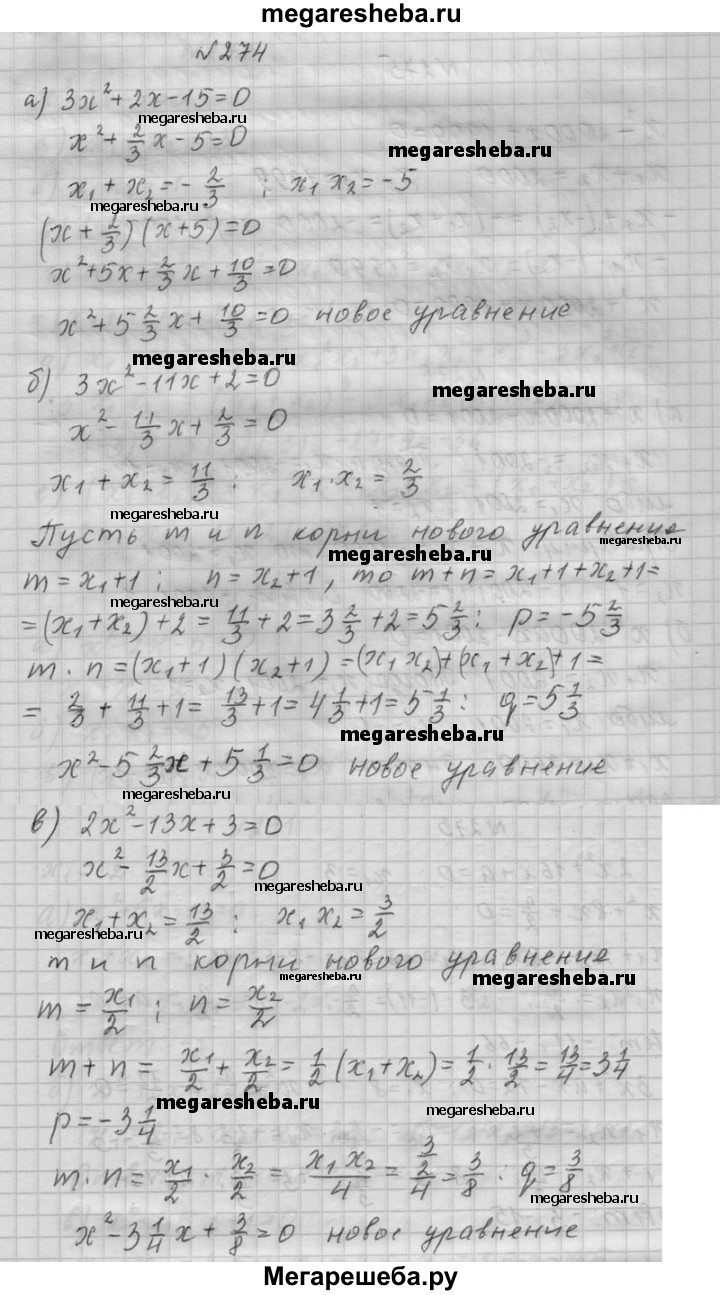 megaresheba.ru
№274
а) 3x²+2x-15=0
megaresheba.ru
x²+2/3 x-5=0
megaresheba.ru
x₁+x₂=-2/3 ; x₁ x₂=-5
megaresheba.ru
(x+2/3)(x+5)=0
x²+5x+2/3 x+10/3=0
x²+5 2/3 x+10/3=0 новое уравнение
megaresheba.ru
б) 3x²-11x+2=0
megaresheba.ru
x²-11/3 x+2/3=0
x₁+x₂=11/3 ; x₁·x₂=2/3
megaresheba.ru
Пусть m и n корни нового уравнение
megaresheba.ru
megaresheba.ru
m=x₁+1; n=x₂+1, то m+n=x₁+1+x₂+1=
megaresheba.ru
=(x₁+x₂)+2=11/3+2=3 2/3+2=5 2/3; p=-5 2/3
m·n=(x₁+1)(x₂+1)=(x₁ x₂)+(x₁+x₂)+1=
=2/3+11/3+1=13/3+1=4 1/3+1=5 1/3; q=5 1/3
megaresheba.ru
x²-5 2/3 x+5 1/3=0 новое уравнение
megaresheba.ru
в) 2x²-13x+3=0
x²-13/2 x+3/2=0
megaresheba.ru
x₁+x₂=13/2 ; x₁ x₂=3/2
megaresheba.ru
m и n корни нового уравнение
megaresheba.ru
megaresheba.ru
m=x₁/2 ; n=x₂/2
m+n=x₁/2+x₂/2=1/2(x₁+x₂)=1/2·13/2=13/4=3 1/4
megaresheba.ru
megaresheba.ru
p=-3 1/4
m·n=x₁/2·x₂/2=x₁ x₂/4=3/2/4=3/8; q=3/8
megaresheba.ru
x²-3 1/4 x+3/8=0 новое уравнение
Мегарешеба.ру